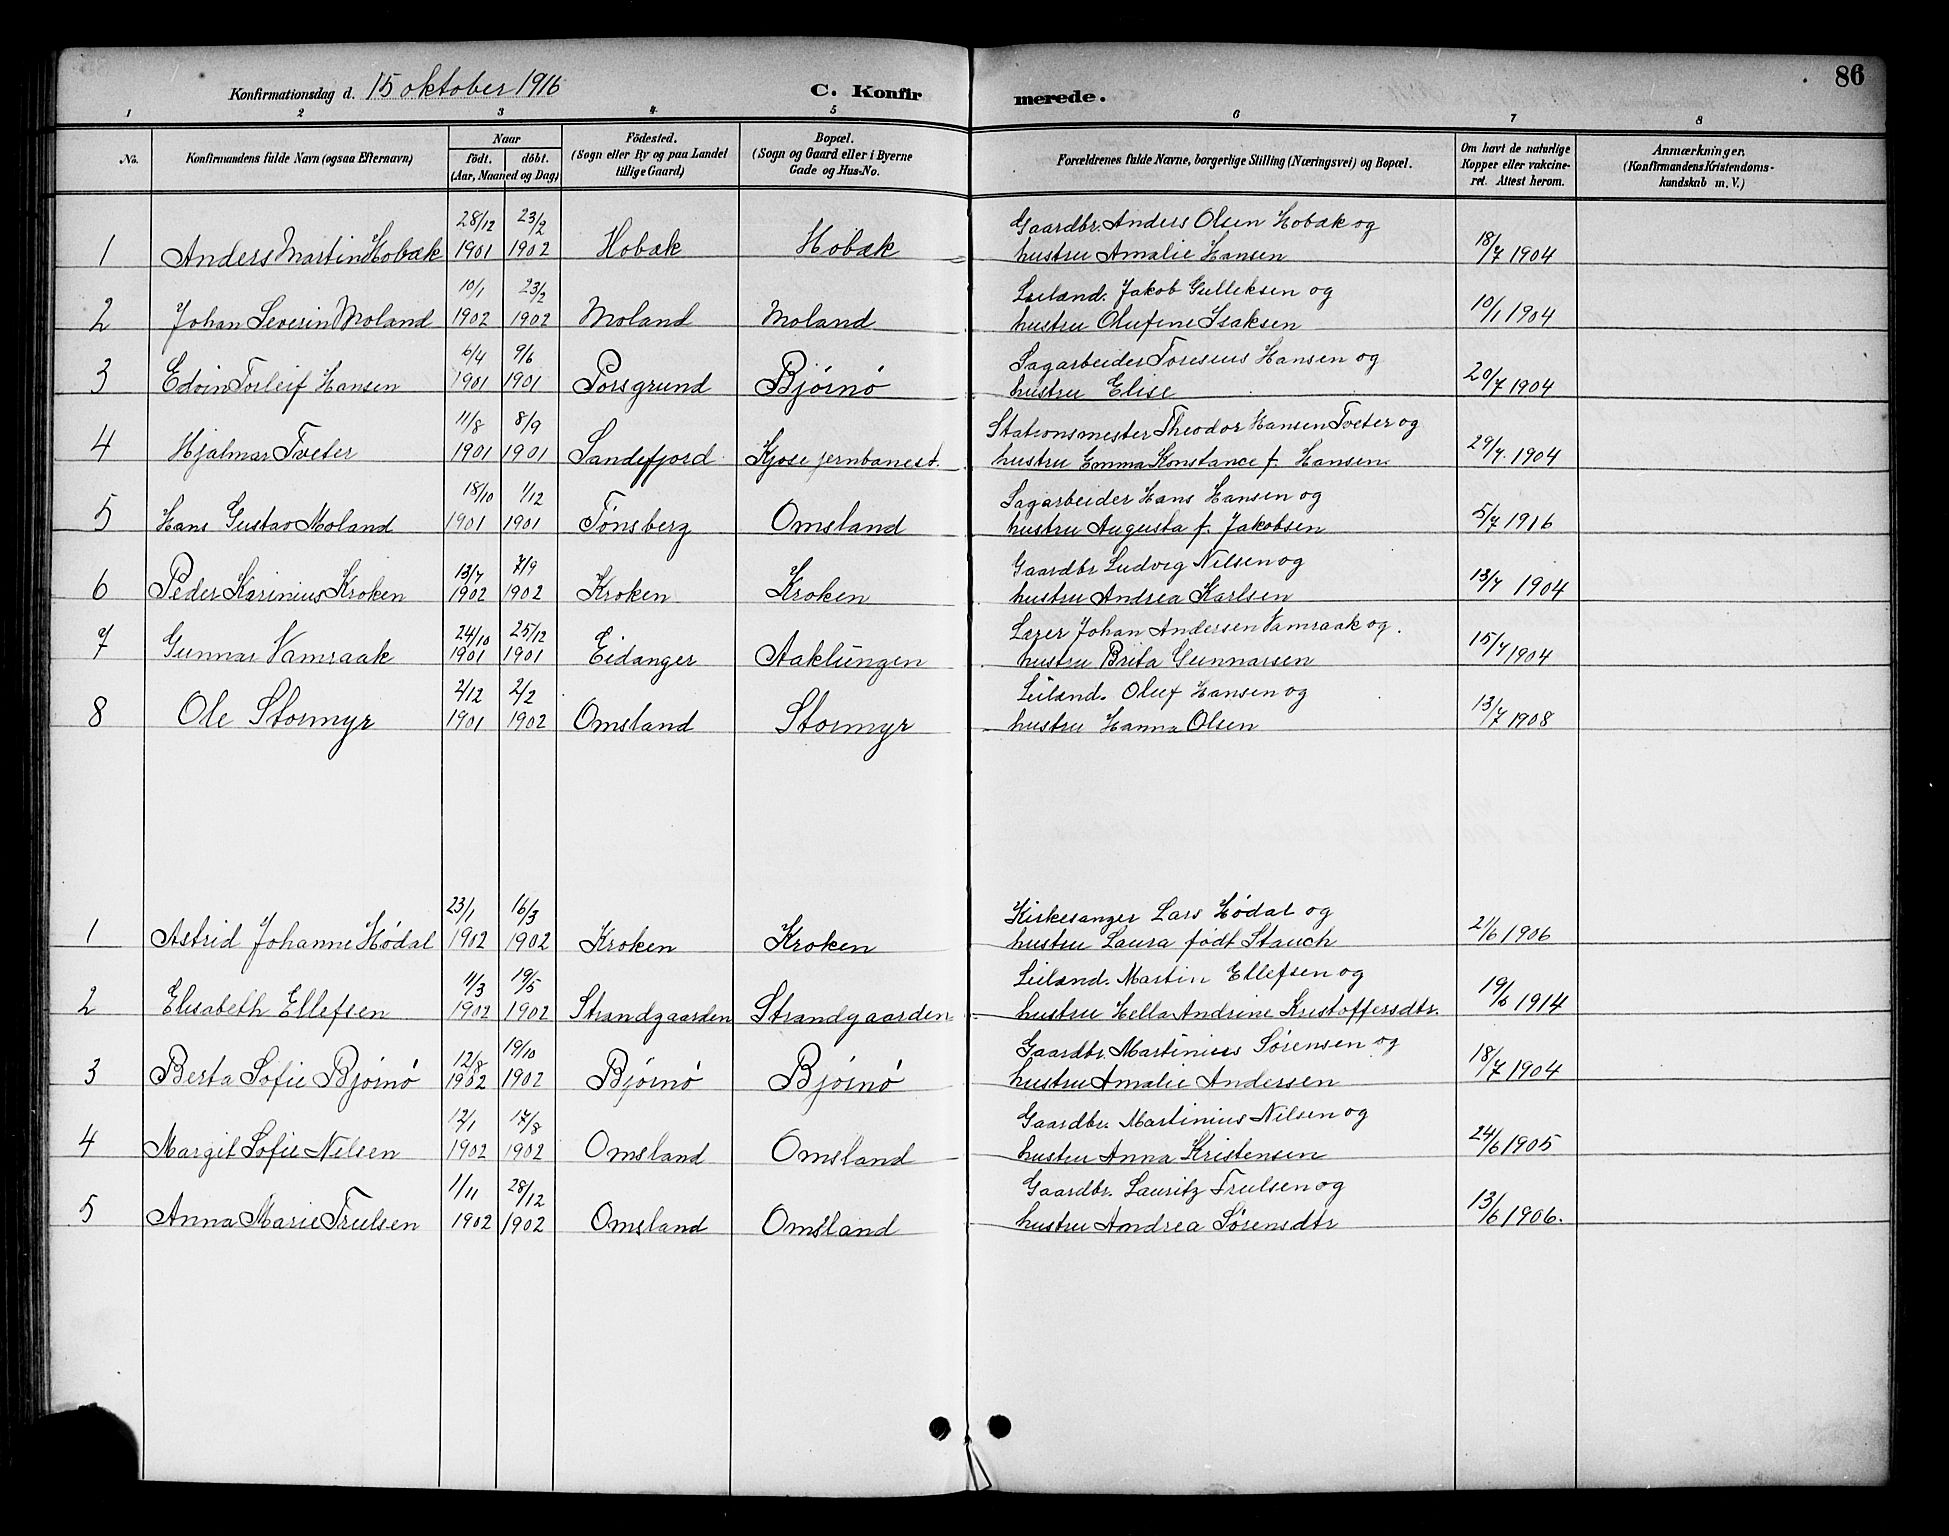 Konfirmationsdag d. 15 oktober 1916 C. Konfirmerede. 86
1 2 3 4 5 6 7 8
No. Konfirmandens fulde Navn (ogsaa Efternavn) Naar födt. döbt. (Aar, Maaned og Dag) Födested. (Sogn eller By og paa Landet tillige Gaard) Bopæl. (Sogn og Gaard eller i Byerne Gade og Hus-No. Forældrenes fulde Navne, borgerlige Stilling (Næringsvei) og Bopæl. Om havt de naturlige Kopper eller vakcineret. Attest herom. Anmærkninger, (Konfirmandens Kristendomskundskab m. V.)
28/12 23/2 Gaardbr. Anders Olsen Hobæk og
1 Anders Martin Hobæk 1901 1902 Hobæk Hobæk hustru Amalie Hansen 18/7 1904
10/1 23/2 Leilænd. Jakob Gulleksen og
2 Johan Severin Moland 1902 1902 Moland Moland hustru Olufine Isaksen 10/1 1904
6/4 9/6 Sagarbeider Toresius Hansen og
3 Edvin Torleif Hansen 1901 1901 Porsgrund Bjørnø hustru Elise 20/7 1904
11/8 8/9 Stationsmester Theodor Hansen Tveter og
4 Hjalmar Tveter 1901 1901 Sandefjord Kjose jernbanest. hustru Emma Konstance f. Hansen. 29/7 1904
18/10 1/12 Sagarbeider Hans Hansen og
5 Hans Gustav Moland 1901 1901 Tønsberg Omsland hustru Augusta f. Jakobsen 5/7 1916
13/7 7/9 Gaardbr Ludvig Nilsen og
6 Peder Karinius Kroken 1902 1902 Kroken Kroken hustru Andrea Karlsen 13/7 1904
24/10 25/12 Lærer Johan Andersen Vamraak og.
7 Gunnar Vamraak 1901 1901 Eidanger Aaklungen hustru Brita Gunnarsen 15/7 1904
2/12 2/2 Leilænd. Oluf Hansen og
8 Ole Stormyr 1901 1902 Omsland Stormyr hustru Hanna Olsen 13/7 1908
23/1 16/3 Kirkesanger Lars Hødal og
1 Astrid Johanne Hødal 1902 1902 Kroken Kroken hustru Laura født Stauch 21/6 1906
11/3 19/5 Leilænd. Martin Ellefsen og
2 Elisabeth Ellefsen 1902 1902 Strandgaarden Strandgaarden hustru Hella Andrine Kristoffersdtr. 19/6 1914
12/8 19/10 Gaardbr. Martinius Sørensen og
3 Berta Sofie Bjørnø 1902 1902 Bjørnø Bjørnø hustru Amalie Andersen 18/7 1904
12/1 17/8 Gaardbr. Martinius Nilsen og
4 Margit Sofie Nilsen 1902 1902 Omsland Omsland hustru Anna Kristensen 24/6 1905
1/11 28/12 Gaardbr. Lauritz Trulsen og
5 Anna Marie Trulsen 1902 1902 Omsland Omsland hustru Andrea Sørensdtr 13/6 1906.